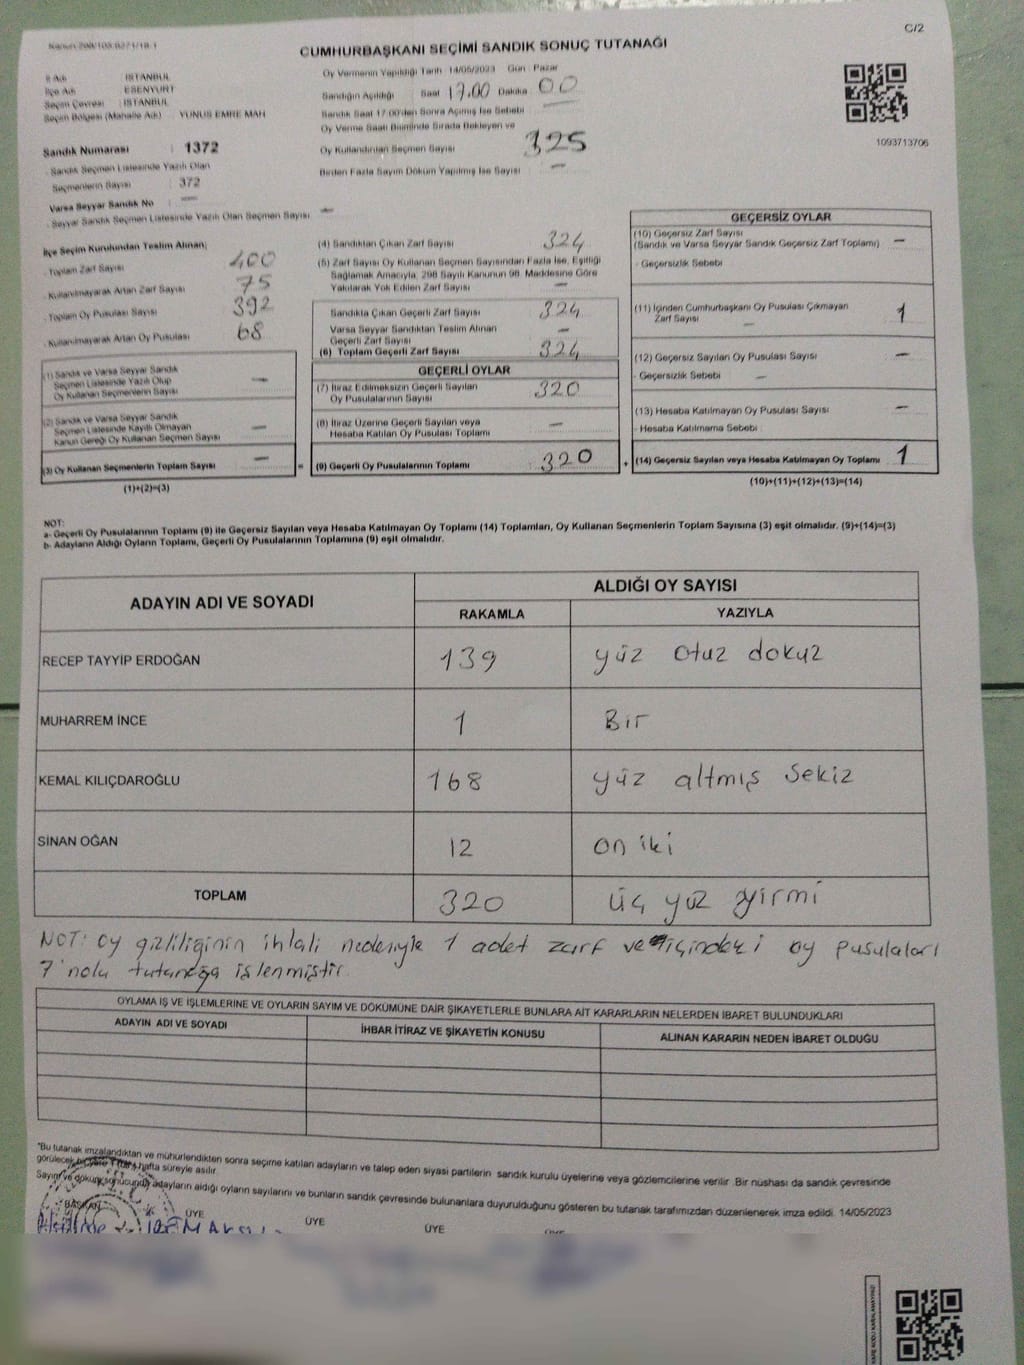 C/2
CUMHURBAŞKANI SEÇİMİ SANDIK SONUÇ TUTANAĞI
İl Adı : İSTANBUL
İlçe Adı : ESENYURT
Seçim Çevresi : İSTANBUL
Seçim Bölgesi (Mahalle Adı) : YUNUS EMRE MAH
Oy Vermenin Yapıldığı Tarih 14/05/2023 Gün : Pazar
Sandığın Açıldığı Saat 17.00 Dakika 00
Sandık Saat 17:00'den Sonra Açılmış İse Sebebi
Oy Verme Saati Bitiminde Sırada Bekleyen ve
Oy Kullandırılan Seçmen Sayısı 325
Birden Fazla Sayım Döküm Yapılmış İse Sayısı —
1093713706
Sandık Numarası : 1372
- Sandık Seçmen Listesinde Yazılı Olan
Seçmenlerin Sayısı : 372
Varsa Seyyar Sandık No : —
- Seyyar Sandık Seçmen Listesinde Yazılı Olan Seçmen Sayısı : —
İlçe Seçim Kurulundan Teslim Alınan;
- Toplam Zarf Sayısı 400
- Kullanılmayarak Artan Zarf Sayısı 75
- Toplam Oy Pusulası Sayısı 392
- Kullanılmayarak Artan Oy Pusulası 68
(1) Sandık ve Varsa Seyyar Sandık
Seçmen Listesinde Yazılı Olup
Oy Kullanan Seçmenlerin Sayısı —
(2) Sandık ve Varsa Seyyar Sandık
Seçmen Listesinde Kayıtlı Olmayan
Kanun Gereği Oy Kullanan Seçmen Sayısı —
(3) Oy Kullanan Seçmenlerin Toplam Sayısı —
(1)+(2)=(3)
(4) Sandıktan Çıkan Zarf Sayısı 324
(5) Zarf Sayısı Oy Kullanan Seçmen Sayısından Fazla İse, Eşitliği
Sağlamak Amacıyla, 298 Sayılı Kanunun 98. Maddesine Göre
Yakılarak Yok Edilen Zarf Sayısı —
Sandıkta Çıkan Geçerli Zarf Sayısı 324
Varsa Seyyar Sandıktan Teslim Alınan
Geçerli Zarf Sayısı —
(6) Toplam Geçerli Zarf Sayısı 324
GEÇERLİ OYLAR
(7) İtiraz Edilmeksizin Geçerli Sayılan
Oy Pusulalarının Sayısı 320
(8) İtiraz Üzerine Geçerli Sayılan veya
Hesaba Katılan Oy Pusulası Toplamı —
= (9) Geçerli Oy Pusulalarının Toplamı 320 +
GEÇERSİZ OYLAR
(10) Geçersiz Zarf Sayısı
(Sandık ve Varsa Seyyar Sandık Geçersiz Zarf Toplamı) —
- Geçersizlik Sebebi
(11) İçinden Cumhurbaşkanı Oy Pusulası Çıkmayan
Zarf Sayısı — 1
(12) Geçersiz Sayılan Oy Pusulası Sayısı —
- Geçersizlik Sebebi —
(13) Hesaba Katılmayan Oy Pusulası Sayısı —
- Hesaba Katılmama Sebebi
(14) Geçersiz Sayılan veya Hesaba Katılmayan Oy Toplamı 1
(10)+(11)+(12)+(13)=(14)
NOT:
a- Geçerli Oy Pusulalarının Toplamı (9) ile Geçersiz Sayılan veya Hesaba Katılmayan Oy Toplamı (14) Toplamları, Oy Kullanan Seçmenlerin Toplam Sayısına (3) eşit olmalıdır. (9)+(14)=(3)
b- Adayların Aldığı Oyların Toplamı, Geçerli Oy Pusulalarının Toplamına (9) eşit olmalıdır.
ADAYIN ADI VE SOYADI
ALDIĞI OY SAYISI
RAKAMLA YAZIYLA
RECEP TAYYİP ERDOĞAN 139 yüz otuz dokuz
MUHARREM İNCE 1 Bir
KEMAL KILIÇDAROĞLU 168 yüz altmış sekiz
SİNAN OĞAN 12 on iki
TOPLAM 320 üç yüz yirmi
NOT: oy gizliliğinin ihlali nedeniyle 1 adet zarf ve içindeki oy pusulaları
7'nolu tutanağa işlenmiştir.
OYLAMA İŞ VE İŞLEMLERİNE VE OYLARIN SAYIM VE DÖKÜMÜNE DAİR ŞİKAYETLERLE BUNLARA AİT KARARLARIN NELERDEN İBARET BULUNDUKLARI
ADAYIN ADI VE SOYADI İHBAR İTİRAZ VE ŞİKAYETİN KONUSU ALINAN KARARIN NEDEN İBARET OLDUĞU
*Bu tutanak imzalandıktan ve mühürlendikten sonra seçime katılan adayların ve talep eden siyasi partilerin sandık kurulu üyelerine veya gözlemcilerine verilir. Bir nüshası da sandık çevresinde
görülecek bir yere 1 hafta süreyle asılır.
Sayım ve döküm sonucunda adayların aldığı oyların sayılarını ve bunların sandık çevresinde bulunanlara duyurulduğunu gösteren bu tutanak tarafımızdan düzenlenerek imza edildi. 14/05/2023
BAŞKAN ÜYE ÜYE ÜYE ÜYE